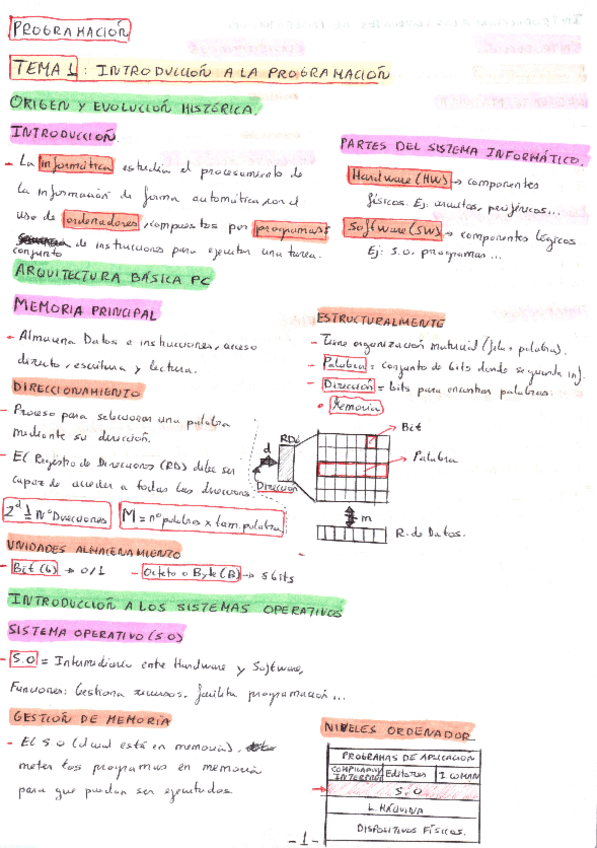 PROGRAMACIÓN
TEMA 1: INTRODUCCIÓN A LA PROGRAMACIÓN
ORIGEN Y EVOLUCIÓN HISTÓRICA.
INTRODUCCIÓN.
- La informática estudia el procesamiento de
la información de forma automática, por el
uso de ordenadores, compuestos por programas:
conjunto de instrucciones para ejecutar una tarea.
PARTES DEL SISTEMA INFORMÁTICO.
Hardware (HW) → componentes
físicos. Ej: circuitos, periféricos...
Software (SW) → componentes lógicos
Ej: S.O, programas...
ARQUITECTURA BÁSICA PC
MEMORIA PRINCIPAL
- Almacena Datos e instrucciones, acceso
directo, escritura y lectura.
DIRECCIONAMIENTO
- Proceso para seleccionar una palabra
mediante su dirección.
- El Registro de Direcciones (RD) debe ser
capaz de acceder a todas las direcciones.
Nº Direcciones
M = nº palabras x tam. palabra
ESTRUCTURALMENTE
- Tiene organización matricial (fila, palabra).
- Palabra = conjunto de bits donde se guarda inf.
- Dirección = bits para encontrar palabras.
• Memoria
Bit
Palabra
RD
d
Dirección
m
R. de Datos.
UNIDADES ALMACENAMIENTO
- Bit (b) → 0/1
- Octeto o Byte (B) → 8 bits
INTRODUCCIÓN A LOS SISTEMAS OPERATIVOS
SISTEMA OPERATIVO (S.O)
- S.O = Intermediario entre Hardware y Software,
Funciones: Gestiona recursos, facilita programación...
GESTIÓN DE MEMORIA
- El S.O (el cual está en memoria),
meter los programas en memoria
para que puedan ser ejecutados
NIVELES ORDENADOR
PROGRAMAS DE APLICACIÓN
Editores
I COMAN
S.O
L. MÁQUINA
DISPOSITIVOS FÍSICOS.
- 1 -